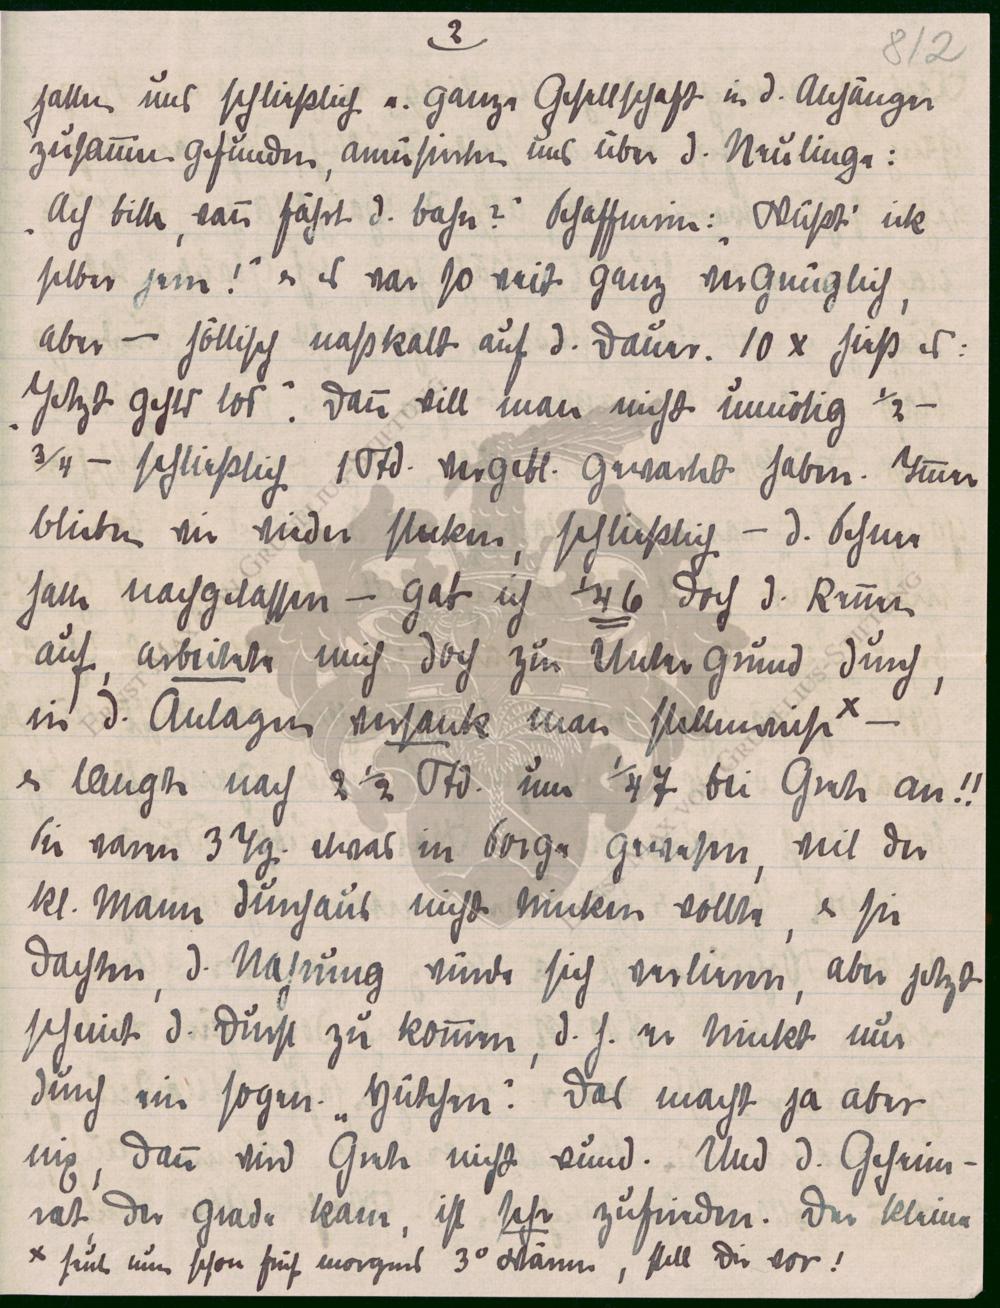 2
8/2
hatten uns schließlich e. ganze Gesellschaft in d. Anhänger
zusam̅en gefunden, amüsierten uns über d. Neulinge:
„Ach bitte, wan̅ fährt d. bahn?" Schaffnerin: „Wüßt' ick
selber jern!" & es war so weit ganz vergnüglich,
aber — höllisch naßkalt auf d. Dauer. 10 x hieß es:
„Jetzt gehts los". Dan̅ will man nicht unnötig ½ —
¾ — schließlich 1 Std. vergebl. gewartet haben. Im̅er
blieben wir wieder stecken, schließlich — d. Schnee
hatte nachgelassen — gab ich ¼ 6 doch d. Ren̅en
auf, arbeitete mich doch zur Untergrund durch,
in d. Anlagen versank man stellenweise x —
& langte nach 2 ½ Std. um ¼ 7 bei Grete an!!
Sie waren 3 Tg. etwas in Sorge gewesen, weil der
kl. Mann durchaus nicht trinken wollte, & sie
dachten, d. Nahrung würde sich verlieren, aber jetzt
scheint d. Durst zu kom̅en, d. h. er trinkt nur
durch ein sogen. „Hütchen". Das macht ja aber
nix, dan̅ wird Grete nicht wund. Und d. Geheim-
rat, der grade kam, ist sehr zufrieden. Der kleine
x heute um schon früh morgens 3° Wärme, stell Dir vor!
Ernst von Grunelius-Stiftung